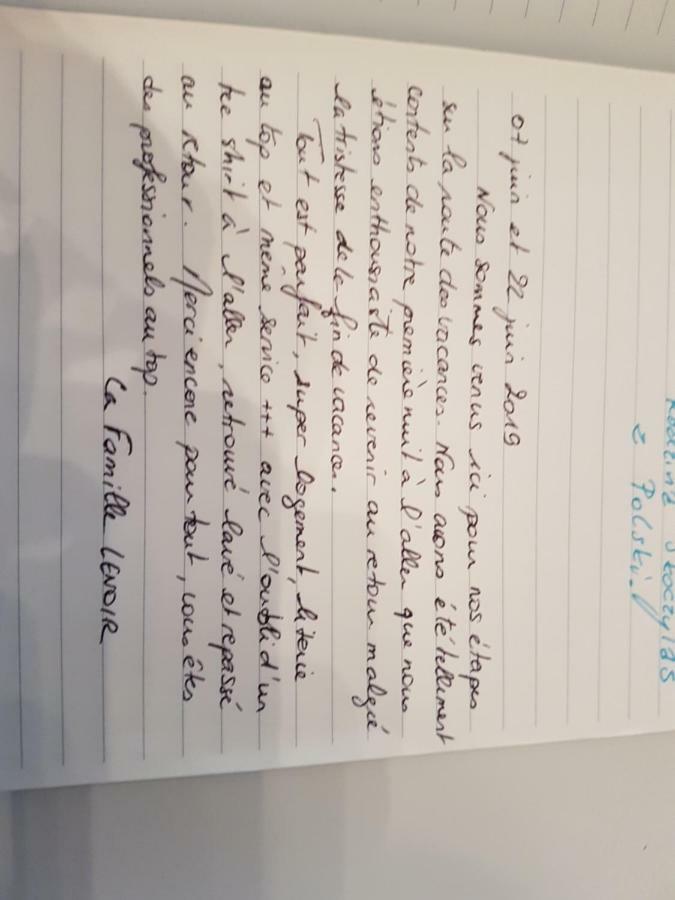 Rodzina Skoczylas
z Polski
07 juin et 22 juin 2019
Nous sommes venus ici pour nos étapes
sur la route des vacances. Nous avons été tellement
contents de notre première nuit à l'aller que nous
étions enthousiaste de revenir au retour malgré
la tristesse de la fin de vacances.
Tout est parfait, super logement, literie
au top et même service +++ avec l'oubli d'un
tee shirt à l'aller, retrouvé lavé et repassé
au retour. Merci encore pour tout, vous êtes
des professionnels au top.
La Famille LENOIR